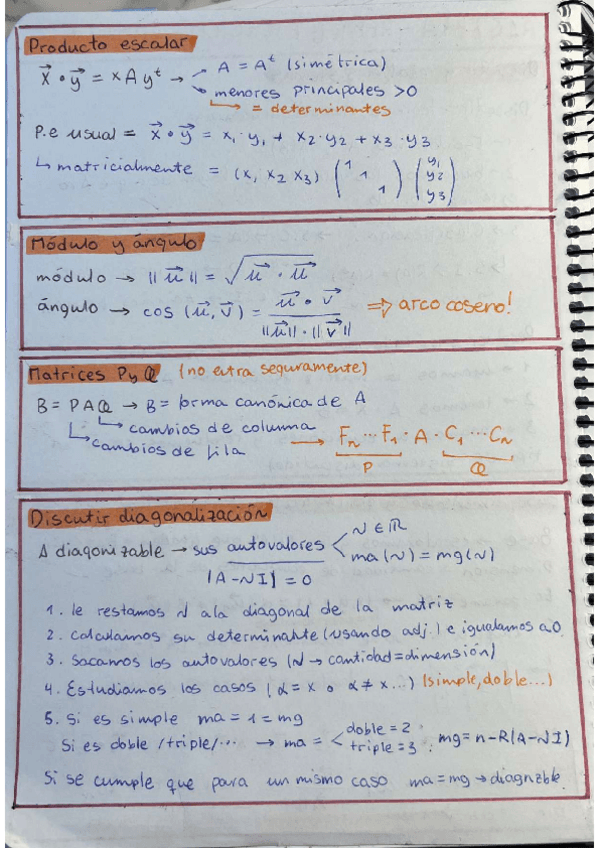 Producto escalar
x⃗ • y⃗ = x A yᵗ → A = Aᵗ (simétrica)
menores principales > 0
↳ = determinantes
P.e usual = x⃗ • y⃗ = x₁·y₁ + x₂·y₂ + x₃·y₃
↳ matricialmente = (x₁ x₂ x₃) (1 1 1) (y₁ y₂ y₃)
Módulo y ángulo
módulo → ||u⃗|| = √u⃗ · u⃗
ángulo → cos (u⃗, v⃗) = u⃗ • v⃗ / ||u⃗|| · ||v⃗|| ⇒ arco coseno!
Matrices P y Q (no entra seguramente)
B = PAQ → B = forma canónica de A
↳ cambios de columna
↳ cambios de fila → Fₙ ... F₁ · A · C₁ ... Cₙ
P Q
Discutir diagonalización
A diagonizable → sus autovalores < λ ∈ ℝ
ma(λ) = mg(λ)
|A - λI| = 0
1. le restamos λ a la diagonal de la matriz
2. Calculamos su determinante (usando adj.) e igualamos a 0
3. Sacamos los autovalores (λ → cantidad = dimensión)
4. Estudiamos los casos (α = x o α ≠ x...) (simple, doble...)
5. Si es simple ma = 1 = mg
Si es doble/triple/... → ma = < doble = 2
triple = 3 : mg = n - R(A - λI)
Si se cumple que para un mismo caso ma = mg → diagnzble